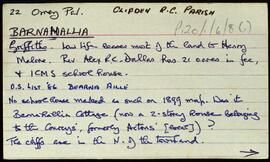 22 Omey Pal. CLIFDEN R.C. PARISH
P120/1/6/8(1)
BARNAMALLIA
Griffiths. Law life leases most of the land to Henry
Malone. Rev Alex R.C. Dallas has 21 acres in fee,
& ICMS school house.
O.S. list '86 BEARNA AILLE
No school house marked as such on 1899 map. Was it
Barnahallia Cottage (now a 2-storey house belonging
to the Conroys, formerly Actons'
The cliffs are in the N. of the townland.